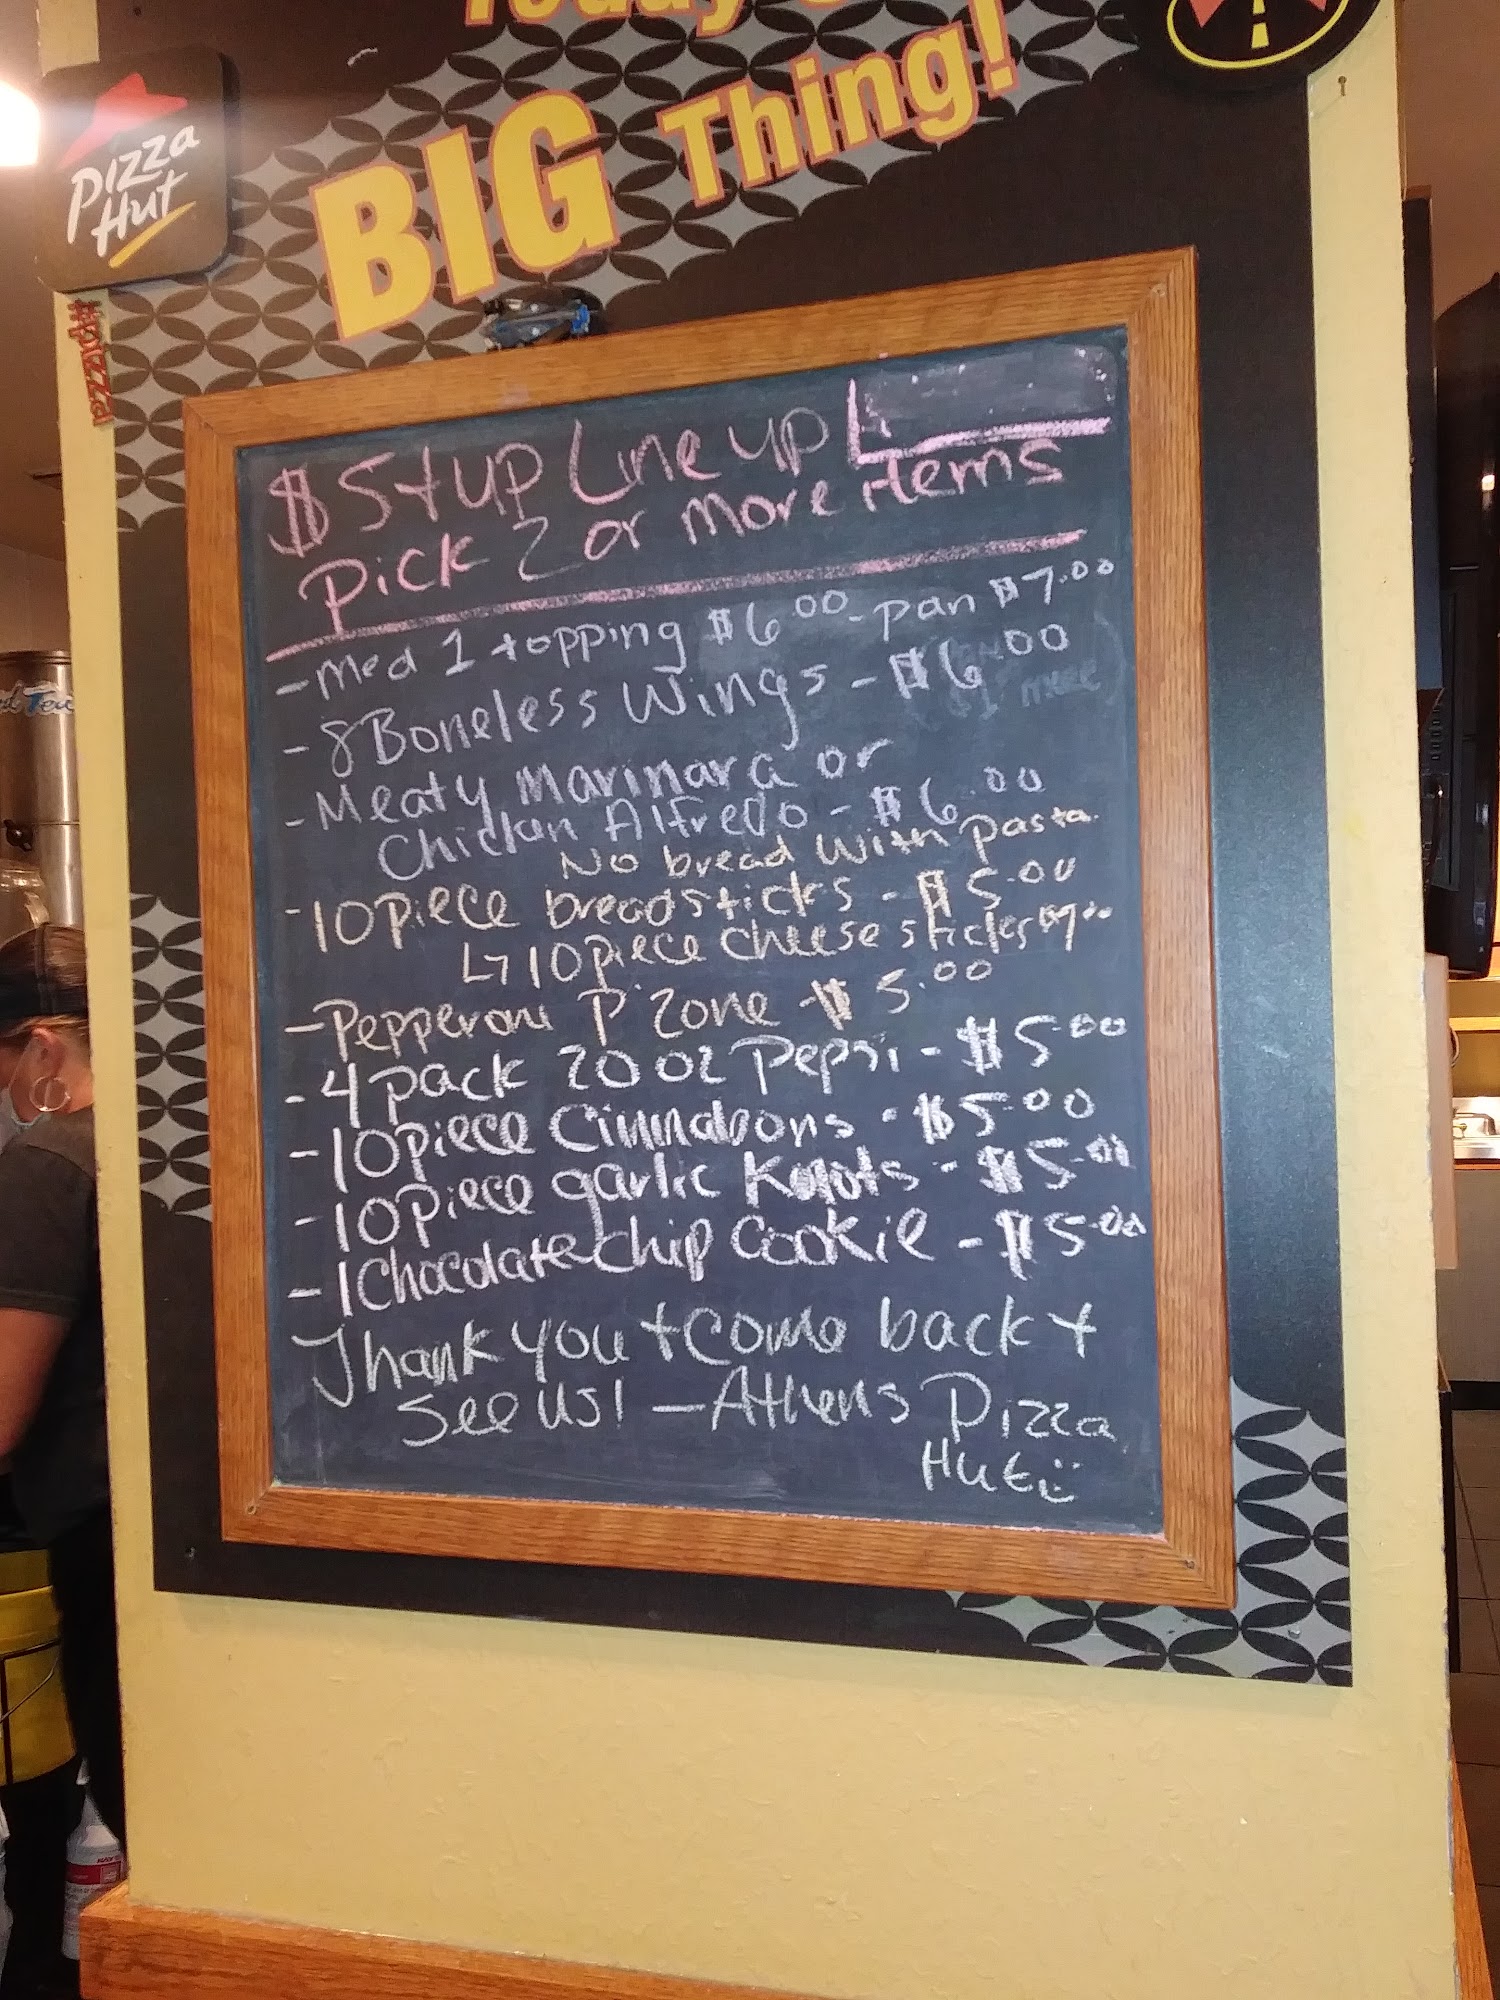 Today's
BIG Thing!
Pizza
Hut
#pizza
$5+up Line up
Pick 2 or more items
- Med 1 topping $6.00 - pan $7.00
- 8 Boneless Wings - $6.00
- Meaty Marinara or
Chicken Alfredo - $6.00
No bread with pasta
- 10 piece breadsticks - $5.00
↳ 10 piece cheese sticks $7.00
- Pepperoni P'Zone - $5.00
- 4 pack 20oz Pepsi - $5.00
- 10 piece Cinnabons - $5.00
- 10 piece garlic Knots - $5.00
- 1 Chocolate chip Cookie - $5.00
Thank you + come back +
see us! - Athens Pizza
Hut